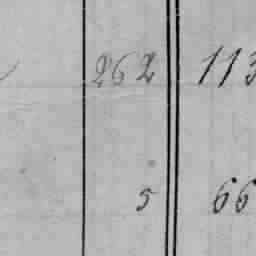 262 113
5 66